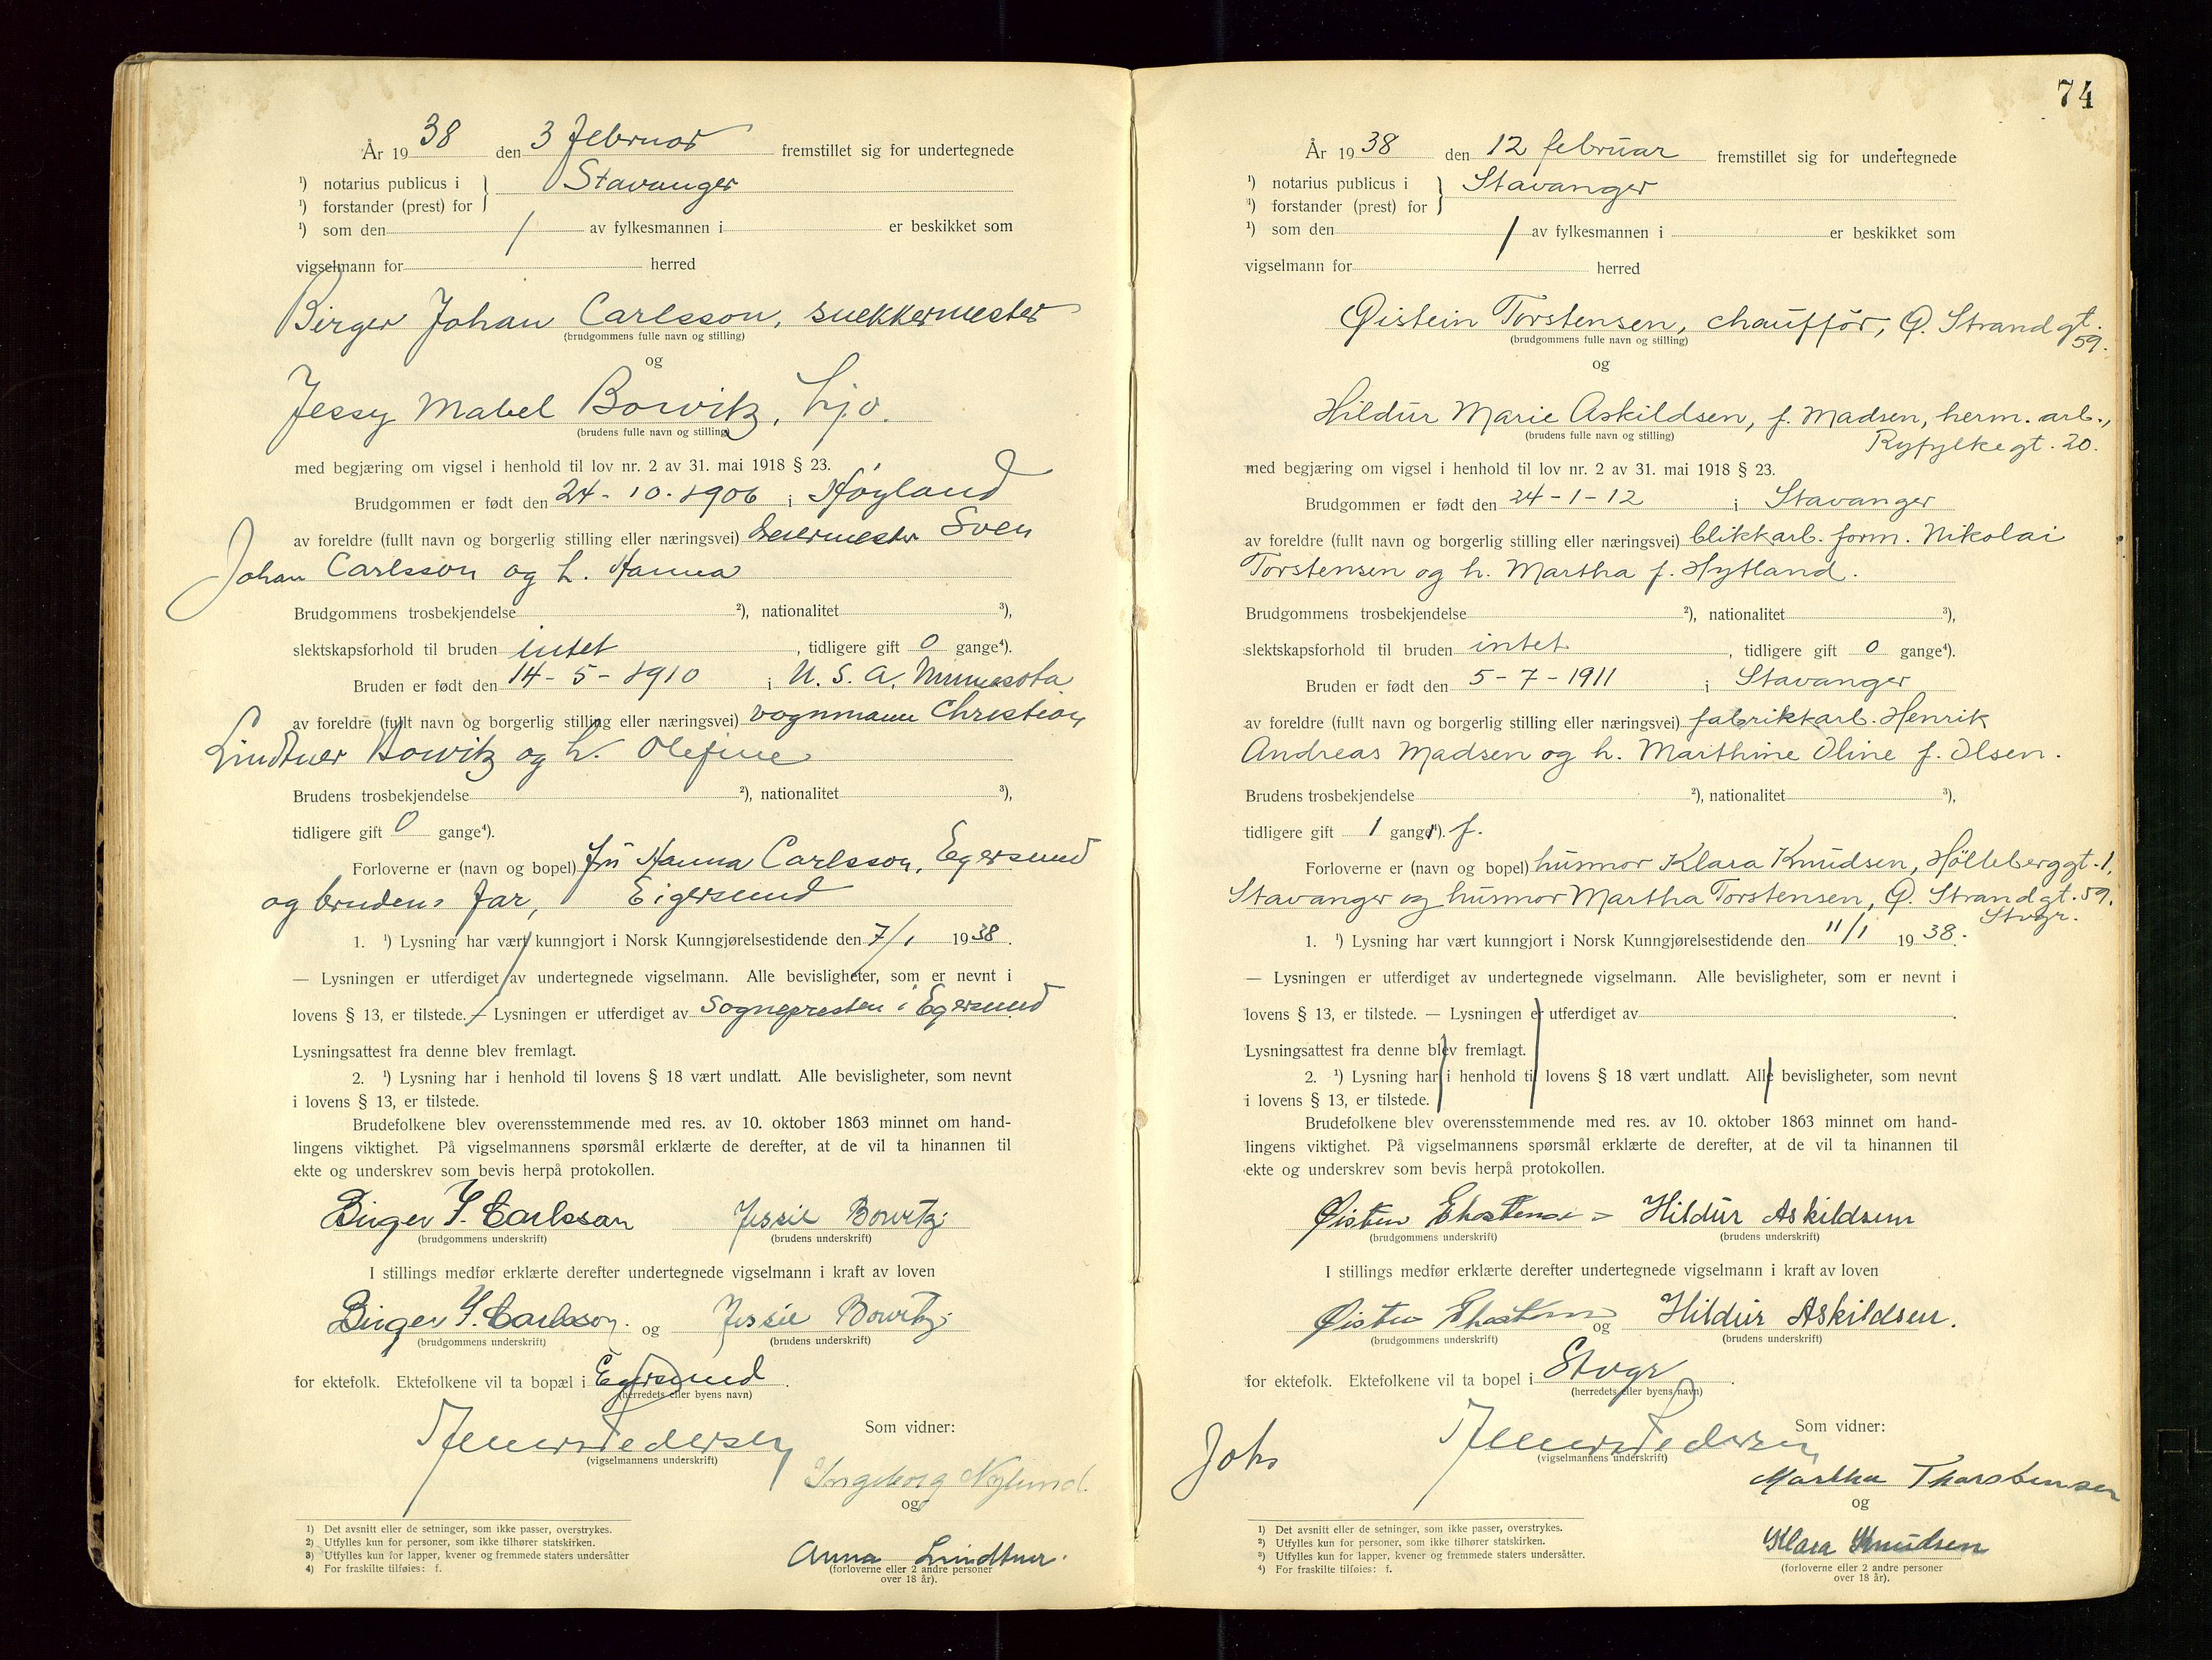 År 1938 den 3 februar fremstillet sig for undertegnede
¹) notarius publicus i } Stavanger
¹) forstander (prest) for
¹) som den / av fylkesmannen i er beskikket som
vigselmann for herred
Birger Johan Carlsson, snekkermester
(brudgommens fulle navn og stilling)
og
Jessy Mabel Bowitz, hj.v.
(brudens fulle navn og stilling)
med begjæring om vigsel i henhold til lov nr. 2 av 31. mai 1918 § 23.
Brudgommen er født den 24-10-1906 i Høyland
av foreldre (fullt navn og borgerlig stilling eller næringsvei) Sven
Johan Carlsson og h. Hanna
Brudgommens trosbekjendelse ²), nationalitet ³),
slektskapsforhold til bruden intet, tidligere gift 0 gange⁴).
Bruden er født den 14-5-1910 i U.S.A. Minnesota
av foreldre (fullt navn og borgerlig stilling eller næringsvei) vognmann Christian
Lindtner Bowitz og h. Olefine
Brudens trosbekjendelse ²), nationalitet ³),
tidligere gift 0 gange⁴).
Forloverne er (navn og bopel) fru Hanna Carlsson, Egersund
og brudens far, Eigersund
1. ¹) Lysning har vært kunngjort i Norsk Kunngjørelsestidende den 7/1 1938.
— Lysningen er utferdiget av undertegnede vigselmann. Alle bevisligheter, som er nevnt i
lovens § 13, er tilstede. — Lysningen er utferdiget av Sognepresten i Egersund
Lysningsattest fra denne blev fremlagt.
2. ¹) Lysning har i henhold til lovens § 18 vært undlatt. Alle bevisligheter, som nevnt
i lovens § 13, er tilstede.
Brudefolkene blev overensstemmende med res. av 10. oktober 1863 minnet om hand-
lingens viktighet. På vigselmannens spørsmål erklærte de derefter, at de vil ta hinannen til
ekte og underskrev som bevis herpå protokollen.
Birger J. Carlsson Jessie Bowitz
(brudgommens underskrift) (brudens underskrift)
I stillings medfør erklærte derefter undertegnede vigselmann i kraft av loven
Birger J. Carlsson. og Jessie Bowitz
(brudgommens underskrift) (brudens underskrift)
for ektefolk. Ektefolkene vil ta bopæl i Egersund.
(herredets eller byens navn)
Som vidner:
Pedersen
(vigselmannens underskrift)
Ingeborg Nylund.
og
Anna Lindtner.
(forloverne eller 2 andre personer
over 18 år).
1) Det avsnitt eller de setninger, som ikke passer, overstrykes.
2) Utfylles kun for personer, som ikke tilhører statskirken.
3) Utfylles kun for lapper, kvener og fremmede staters undersåtter
4) For fraskilte tilføies: f.
74
År 1938 den 12 februar fremstillet sig for undertegnede
¹) notarius publicus i } Stavanger
¹) forstander (prest) for
¹) som den / av fylkesmannen i er beskikket som
vigselmann for herred
Øistein Torstensen, chauffør, Ø. Strandgt.
59.
(brudgommens fulle navn og stilling)
og
Hildur Marie Askildsen, f. Madsen, herm. arb.,
(brudens fulle navn og stilling) Ryfylkegt. 20.
med begjæring om vigsel i henhold til lov nr. 2 av 31. mai 1918 § 23.
Brudgommen er født den 24-1-12 i Stavanger
av foreldre (fullt navn og borgerlig stilling eller næringsvei) blikkarb. form. Nikolai
Torstensen og h. Martha f. Hytland.
Brudgommens trosbekjendelse ²), nationalitet ³),
slektskapsforhold til bruden intet, tidligere gift 0 gange⁴).
Bruden er født den 5-7-1911 i Stavanger
av foreldre (fullt navn og borgerlig stilling eller næringsvei) fabrikkarb. Henrik
Andreas Madsen og h. Marthine Oline f. Olsen.
Brudens trosbekjendelse ²), nationalitet ³),
tidligere gift 1 gange⁴). f.
Forloverne er (navn og bopel) husmor Klara Knudsen, Hølleberggt. 1,
Stavanger og husmor Martha Torstensen, Ø. Strandgt. 59.
Stvgr.
1. ¹) Lysning har vært kunngjort i Norsk Kunngjørelsestidende den 11/1 1938.
— Lysningen er utferdiget av undertegnede vigselmann. Alle bevisligheter, som er nevnt i
lovens § 13, er tilstede. — Lysningen er utferdiget av
Lysningsattest fra denne blev fremlagt.
2. ¹) Lysning har i henhold til lovens § 18 vært undlatt. Alle bevisligheter, som nevnt
i lovens § 13, er tilstede.
Brudefolkene blev overensstemmende med res. av 10. oktober 1863 minnet om hand-
lingens viktighet. På vigselmannens spørsmål erklærte de derefter, at de vil ta hinannen til
ekte og underskrev som bevis herpå protokollen.
Øistein Hildur Askildsen
(brudgommens underskrift) (brudens underskrift)
I stillings medfør erklærte derefter undertegnede vigselmann i kraft av loven
Øistein og Hildur Askildsen.
(brudgommens underskrift) (brudens underskrift)
for ektefolk. Ektefolkene vil ta bopel i Stvgr.
(herredets eller byens navn)
Som vidner:
Johs Pedersen
(vigselmannens underskrift)
Martha Thorstensen
og
Klara Knudsen
(forloverne eller 2 andre personer
over 18 år).
1) Det avsnitt eller de setninger, som ikke passer, overstrykes.
2) Utfylles kun for personer, som ikke tilhører statskirken.
3) Utfylles kun for lapper, kvener og fremmede staters undersåtter.
4) For fraskilte tilføies: f.